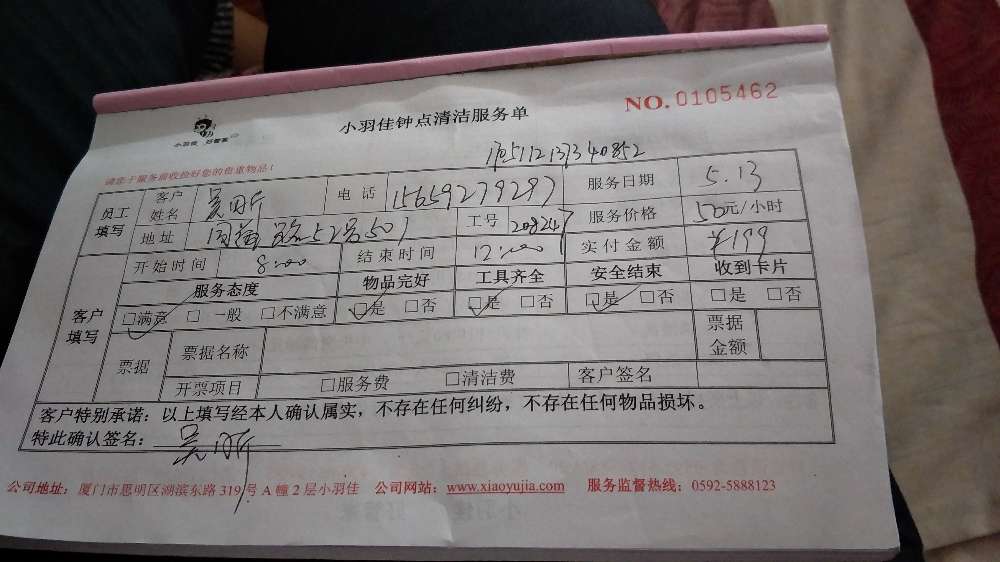 NO.0105462
小羽佳钟点清洁服务单
小羽佳 好管家
请您于服务前收捡好您的贵重物品！
员工填写 客户姓名 电话 15659279297 服务日期 5.13
地址 路52号501 工号 208247 服务价格 50元/小时
开始时间 8:00 结束时间 12:00 实付金额 ¥199
客户填写 服务态度 物品完好 工具齐全 安全结束 收到卡片
□满意 □一般 □不满意 □是 □否 □是 □否 □是 □否 □是 □否
票据 票据名称 票据金额
开票项目 □服务费 □清洁费 客户签名
客户特别承诺：以上填写经本人确认属实，不存在任何纠纷，不存在任何物品损坏。
特此确认签名：
公司地址：厦门市思明区湖滨东路319号A幢2层小羽佳 公司网站：www.xiaoyujia.com 服务监督热线：0592-5888123